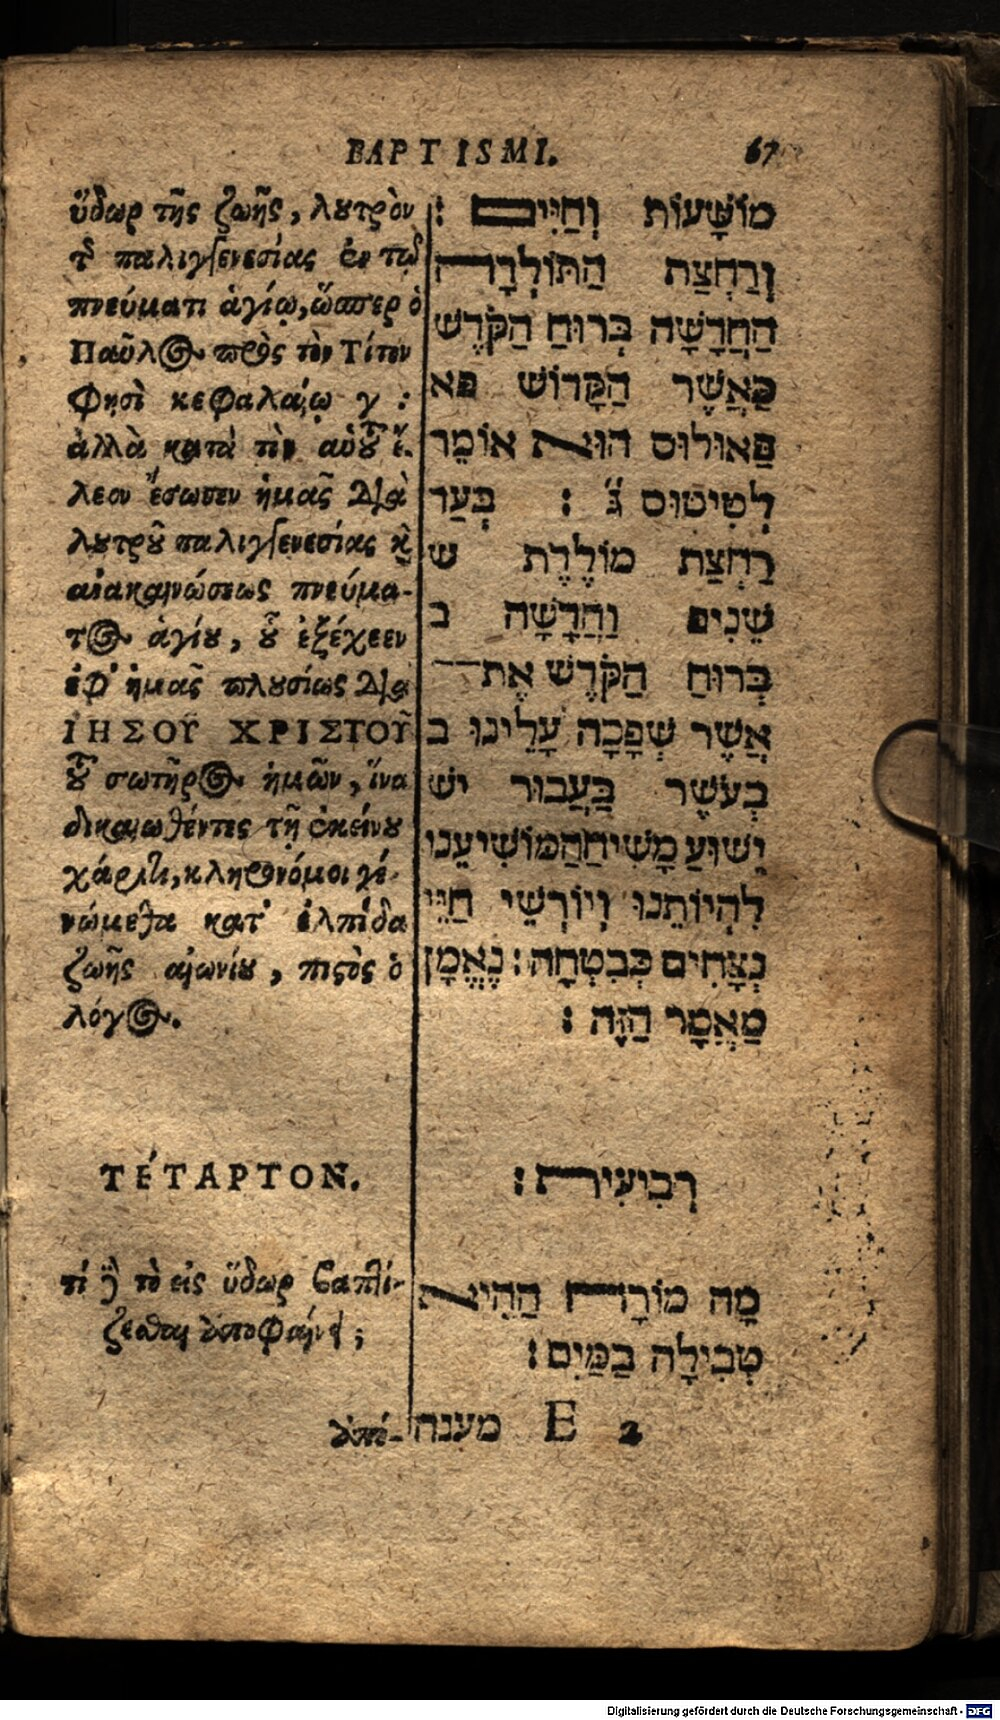 BAPTISMI. 67
ὕδωρ τῆς ζωῆς, λουτρὸν
τῆς παλιγγενεσίας ἐν τῷ
πνεύματι ἁγίῳ, ὥσπερ ὁ
Παῦλος πρὸς τὸν Τίτον
φησὶ κεφαλαίῳ γ :
ἀλλὰ κατὰ τὸν αὐτοῦ ἔ-
λεον ἔσωσεν ἡμᾶς διὰ
λουτροῦ παλιγγενεσίας καὶ
ἀνακαινώσεως πνεύμα-
τος ἁγίου, οὗ ἐξέχεεν
ἐφ' ἡμᾶς πλουσίως διὰ
ΙΗΣΟΥ͂ ΧΡΙΣΤΟΥ͂
τοῦ σωτῆρος ἡμῶν, ἵνα
δικαιωθέντες τῇ ἐκείνου
χάριτι, κληρονόμοι γε-
νώμεθα κατ' ἐλπίδα
ζωῆς αἰωνίου, πιστὸς ὁ
λόγος.
ΤΈΤΑΡΤΟΝ.
τί δὲ τὸ εἰς ὕδωρ βαπτί-
ζεσθαι ἀποφαίνει;
ἀπό-
מוֹשָׁעוֹת וְחַיִּים :
וְרַחְצַת הַתּוֹלְדָה
הַחֲדָשָׁה בְּרוּחַ הַקֹּדֶשׁ
כַּאֲשֶׁר הַקָּדוֹשׁ פא
פַּאוּלוּס הוּא אוֹמֵר
לְטִיטוּס ג : בְּעַד
רַחְצַת מוֹלֶדֶת ש
שֵׁנִים וַחֲדָשָׁה ב
בְּרוּחַ הַקֹּדֶשׁ אֶת־
אֲשֶׁר שָׁפָכָה עָלֵינוּ ב
בְּעֹשֶׁר בַּעֲבוּר יש
יֵשׁוּעַ מָשִׁיחַ הַמּוֹשִׁיעֵנוּ
לִהְיוֹתֵנוּ וְיוֹרְשֵׁי חַיֵּי
נְצָחִים כְּבִטְחָה : נֶאֱמָן
מַאֲמָר הַזֶּה :
רְבִיעִית :
מָה מוֹרָה הַהִיא
טְבִילָה בַמַּיִם :
מענה E 2
Digitalisierung gefördert durch die Deutsche Forschungsgemeinschaft - DFG